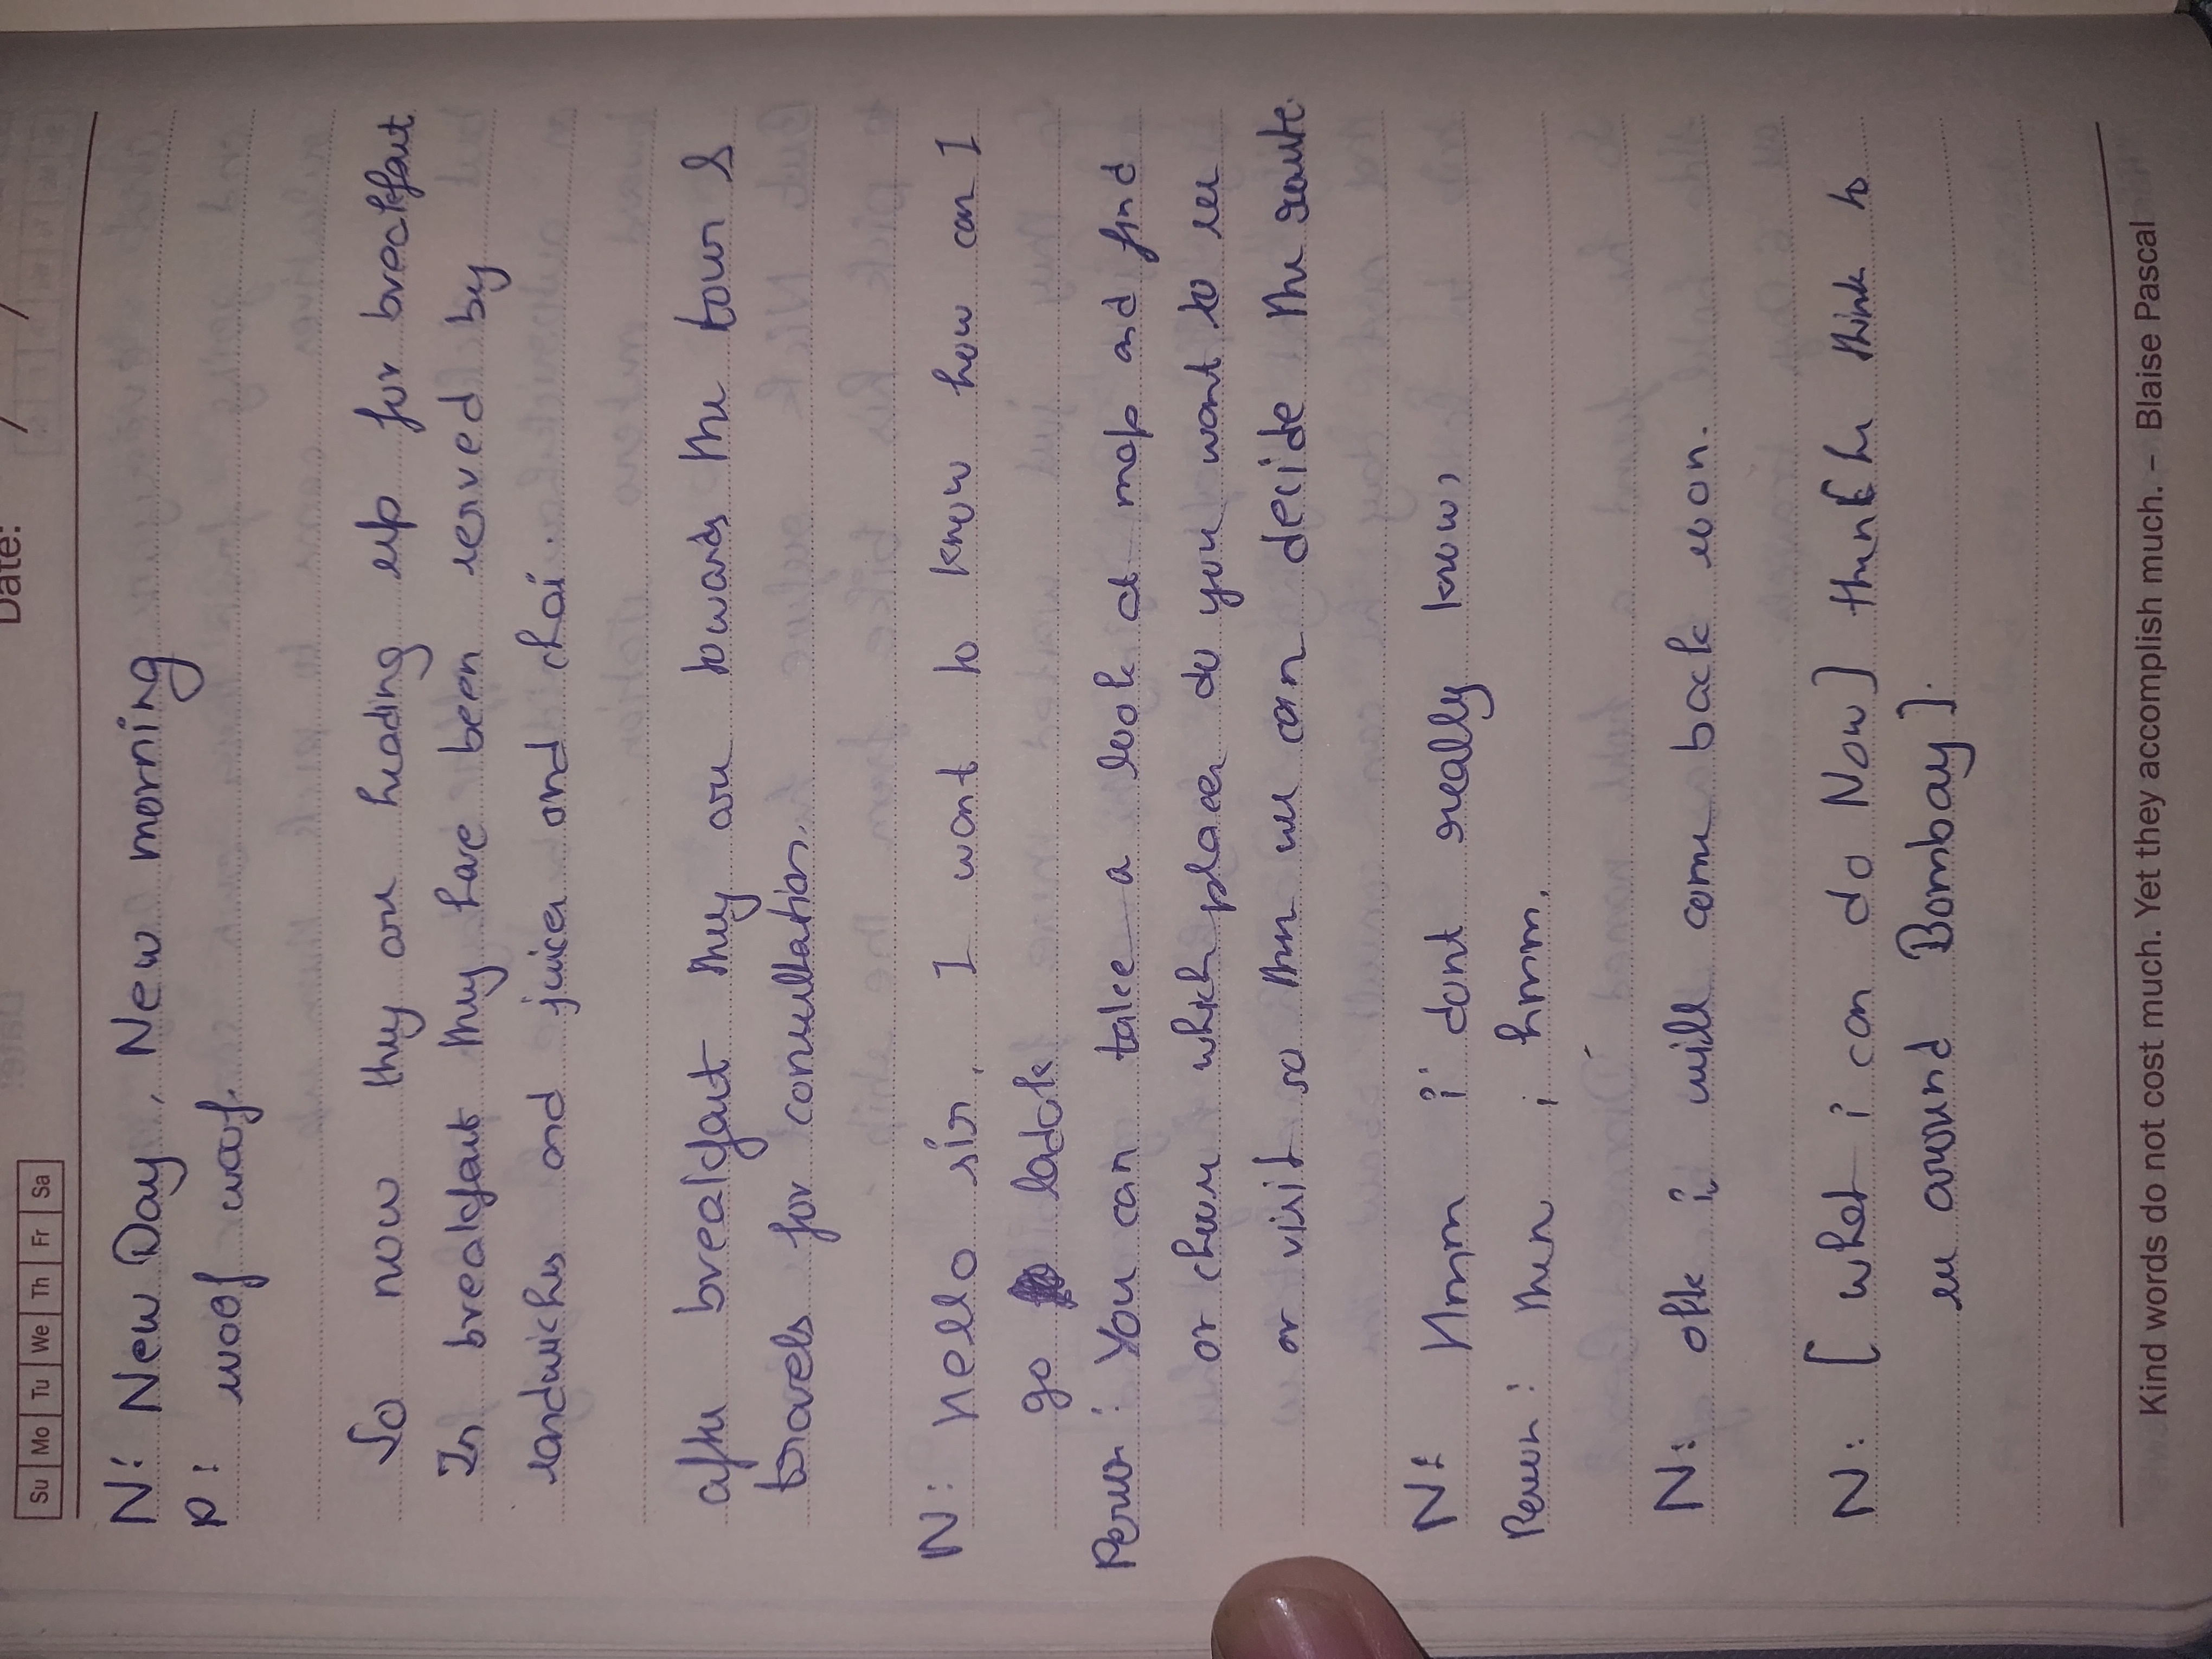 Date: / /
Su Mo Tu We Th Fr Sa
N: New Day, New morning
P: woof woof.
So now they are heading up for breakfast
In breakfast they have been served by
sandwiches and juices and chai..
after breakfast they are towards the tour &
travels for consultation.
N: hello sir, I want to know how can I
go ladak
Person: You can take a look at map and find
or chose which places do you want to see
or visit so then we can decide the route.
N: Hmm i dont really know,
Person: then ; hmm.
N: okk i will come back soon.
N: [ what i can do Now] then [ he think to
see around Bombay].
Kind words do not cost much. Yet they accomplish much. – Blaise Pascal